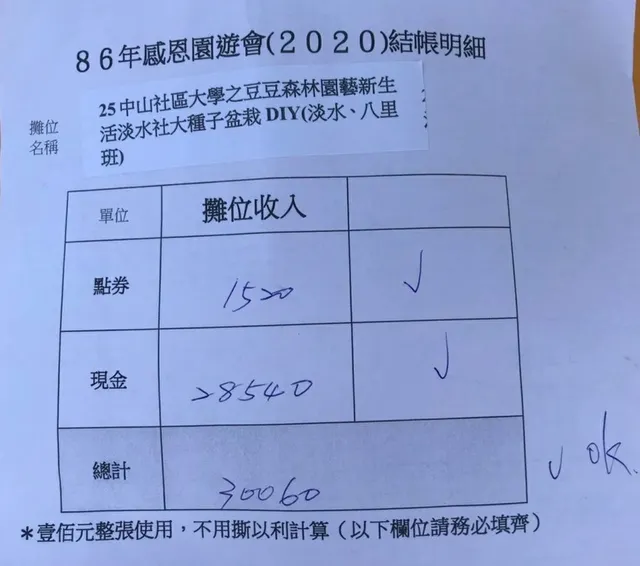 86年感恩園遊會(2020)結帳明細
攤位
名稱
25中山社區大學之豆豆森林園藝新生
活淡水社大種子盆栽DIY(淡水、八里
班)
單位 攤位收入
點券 1520 ✓
現金 28540 ✓
總計 30060
✓ ok.
*壹佰元整張使用，不用撕以利計算（以下欄位請務必填齊）